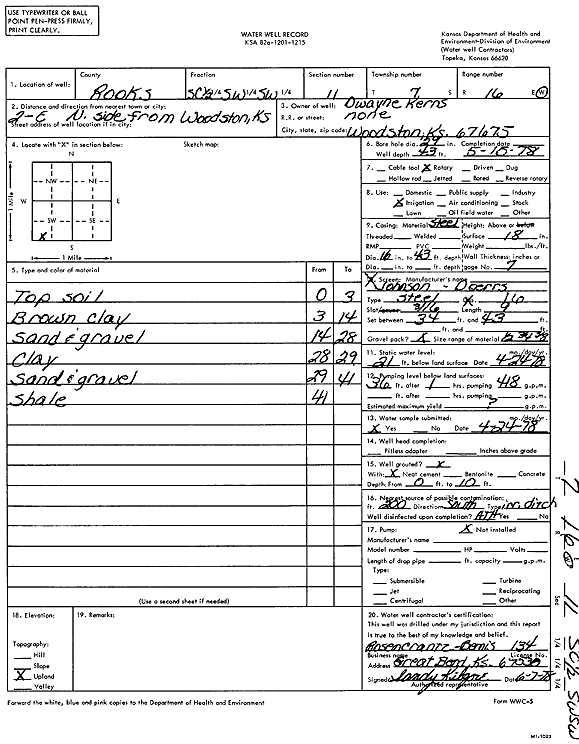 USE TYPEWRITER OR BALL
POINT PEN-PRESS FIRMLY,
PRINT CLEARLY.
WATER WELL RECORD
KSA 82a-1201-1215
Kansas Department of Health and
Environment-Division of Environment
(Water well Contractors)
Topeka, Kansas 66620
1. Location of well:
County Rooks
Fraction 1/4 SW 1/4 SW 1/4
Section number 11
Township number T 7 S
Range number R 16 E/W
2. Distance and direction from nearest town or city:
2-E N. side from Woodston, Ks
Street address of well location if in city:
3. Owner of well: Dwayne Kerns
R.R. or street: none
City, state, zip code: Woodston, Ks. 67675
4. Locate with "X" in section below:
Sketch map:
N
NW NE
W E
SW SE
X
S
1 Mile
1 Mile
6. Bore hole dia. in. Completion date
Well depth 43 ft. 5-10-78
7. Cable tool X Rotary Driven Dug
Hollow rod Jetted Bored Reverse rotary
8. Use: Domestic Public supply Industry
X Irrigation Air conditioning Stock
Lawn Oil field water Other
9. Casing: Material Steel Height: Above or below
Threaded Welded Surface 18 in.
RMP PVC Weight lbs./ft.
Dia. 16 in. to 43 ft. depth Wall Thickness: inches or
Dia. in. to ft. depth gage No. 7
10. Screen: Manufacturer's name
Johnson - Doerrs
Type Steel Dia. 16
Slot/gauze 3/16 Length 9
Set between 34 ft. and 43 ft.
ft. and ft.
Gravel pack? X Size range of material
11. Static water level: mo./day/yr.
21 ft. below land surface Date 4-24-78
12. Pumping level below land surfaces:
36 ft. after 1 hrs. pumping 418 g.p.m.
ft. after hrs. pumping g.p.m.
Estimated maximum yield ? g.p.m.
13. Water sample submitted: mo./day/yr.
X Yes No Date 4-24-78
14. Well head completion:
Pitless adapter Inches above grade
15. Well grouted? X
With: X Neat cement Bentonite Concrete
Depth: From 0 ft. to 10 ft.
16. Nearest source of possible contamination:
ft. 200 Direction South Type irr. ditch
Well disinfected upon completion? HTH Yes No
17. Pump: X Not installed
Manufacturer's name
Model number HP Volts
Length of drop pipe ft. capacity g.p.m.
Type:
Submersible Turbine
Jet Reciprocating
Centrifugal Other
5. Type and color of material From To
Top soil 0 3
Brown clay 3 14
Sand & gravel 14 28
Clay 28 29
Sand & gravel 29 41
Shale 41
(Use a second sheet if needed)
18. Elevation:
Topography:
Hill
Slope
X Upland
Valley
19. Remarks:
20. Water well contractor's certification:
This well was drilled under my jurisdiction and this report
is true to the best of my knowledge and belief.
Rosencrantz-Bemis 134
Business name License No.
Address Great Bend, Ks. 67530
Signed Date 6-7-78
Authorized representative
Forward the white, blue and pink copies to the Department of Health and Environment
Form WWC-5